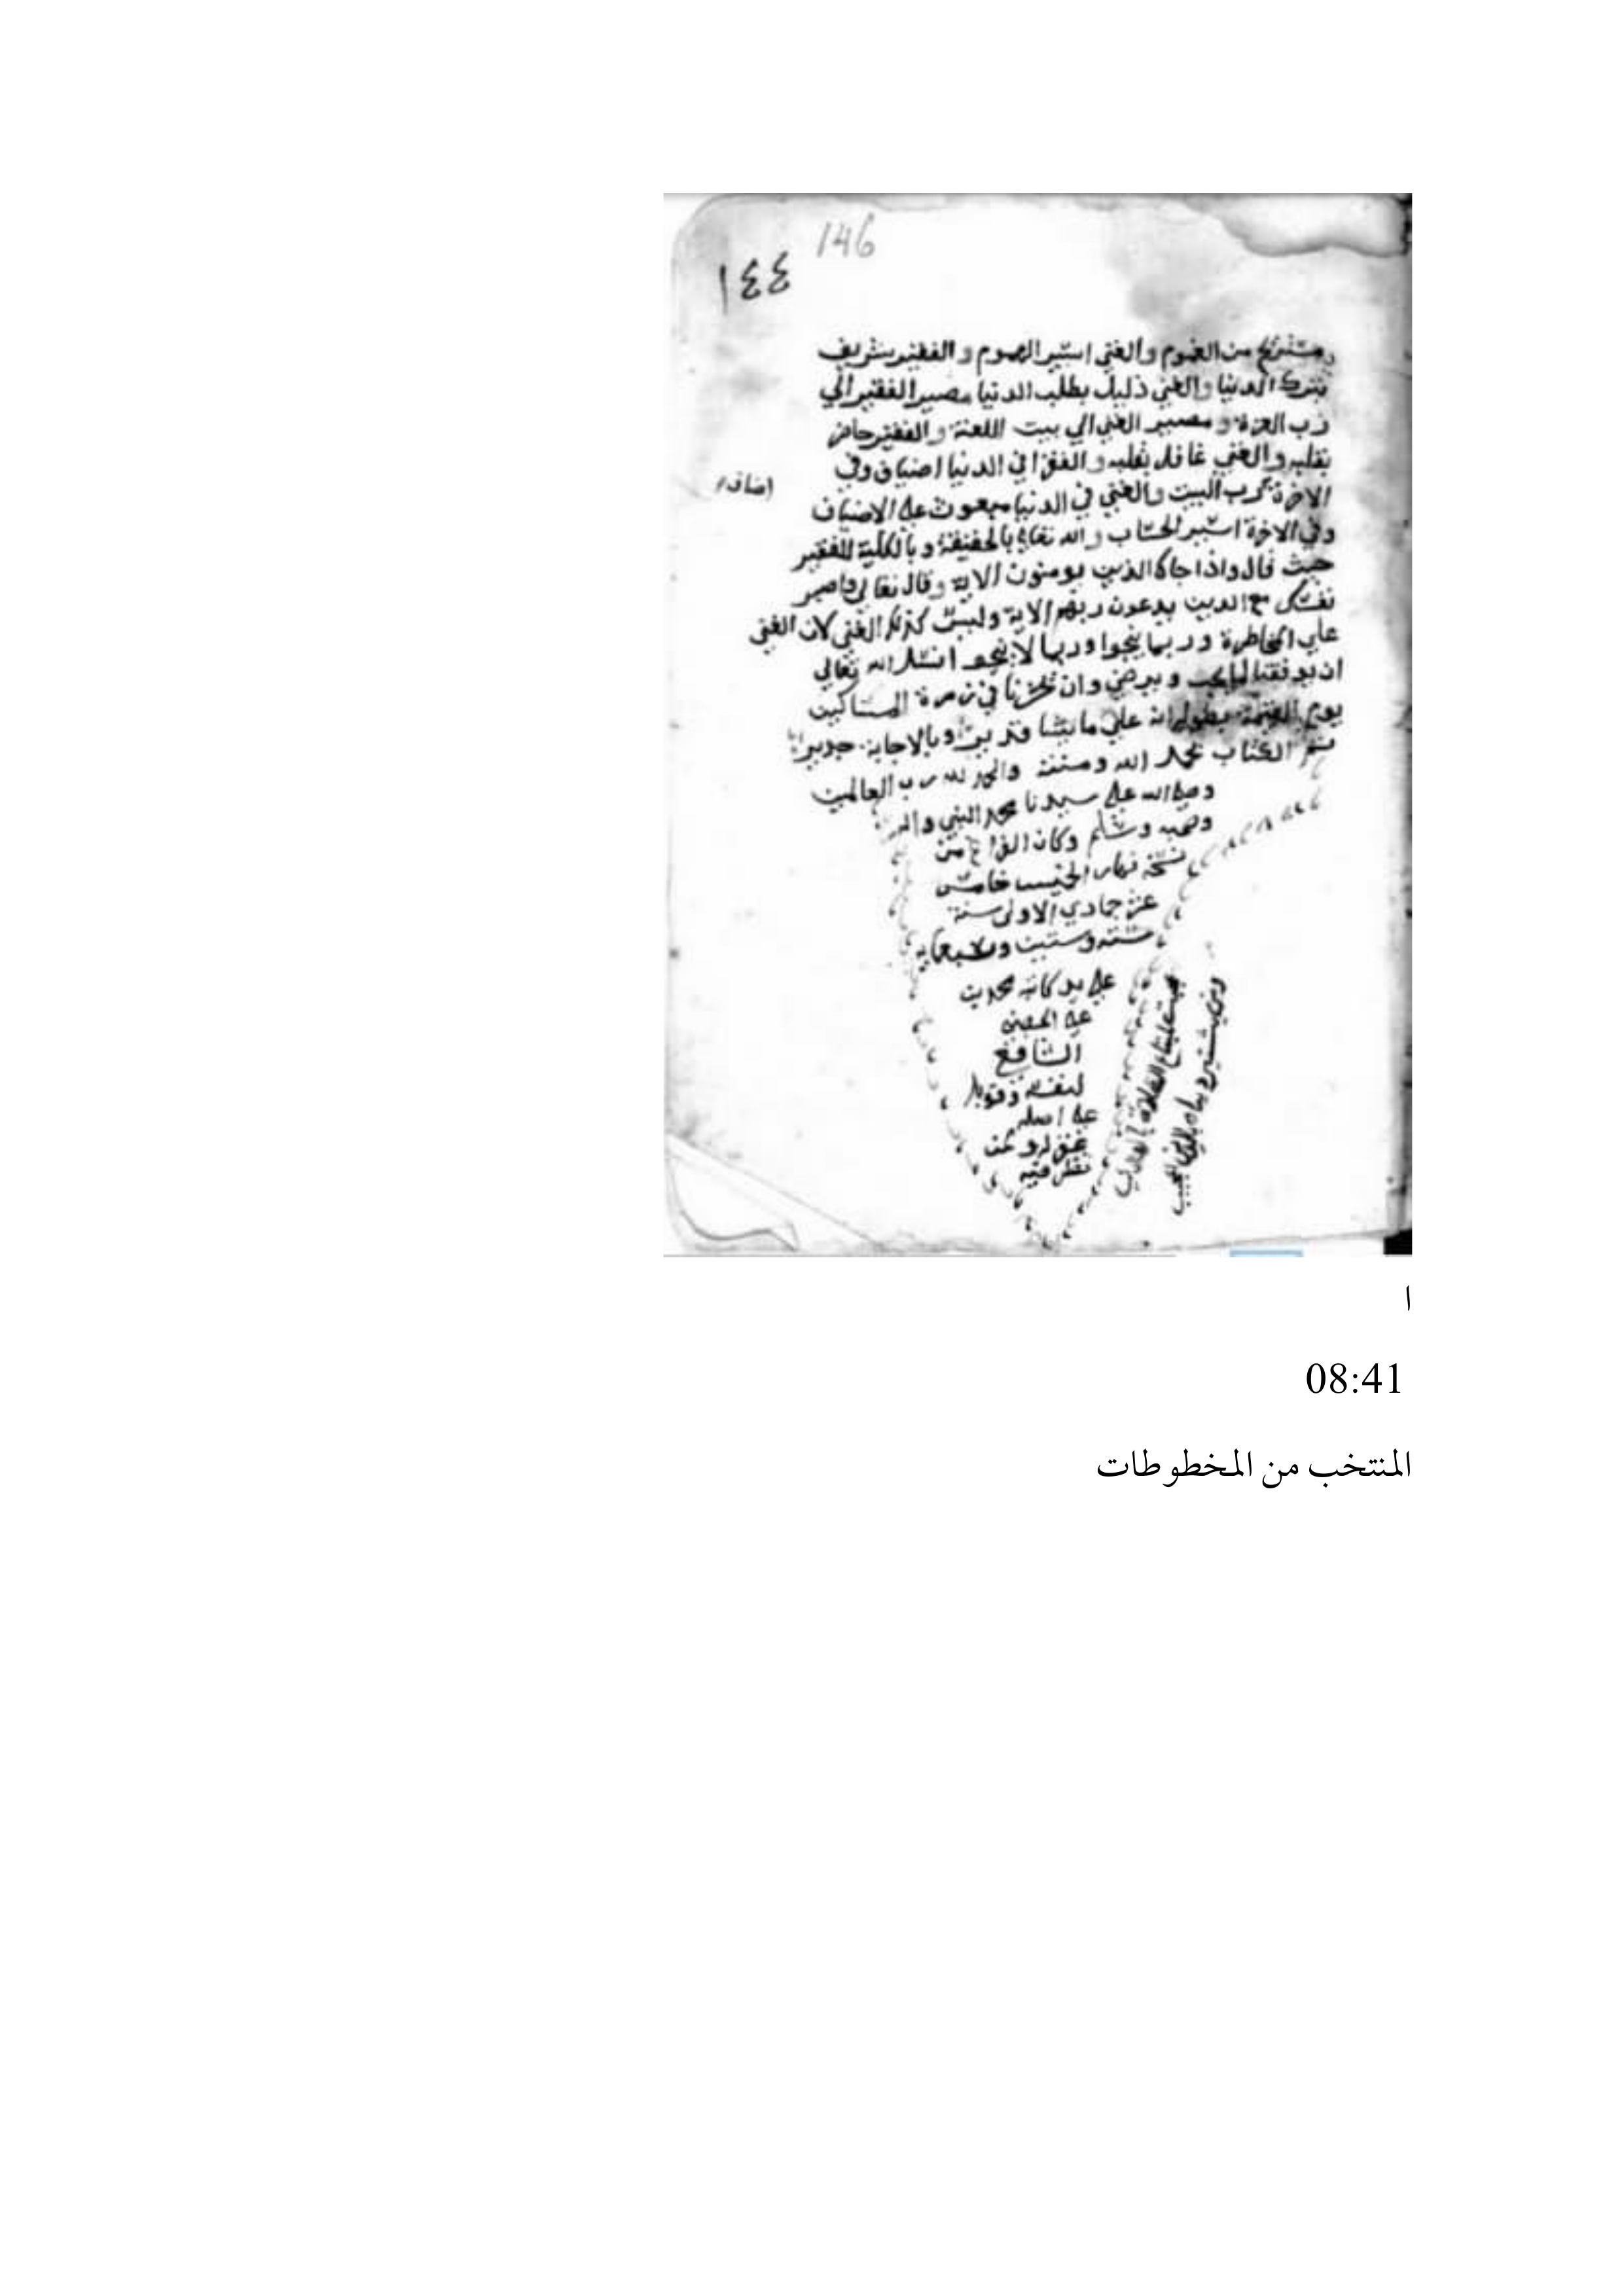 146
١٤٤
ومستريح من الغموم والغني اسير الهموم والفقير شريف
بترك الدنيا والغني ذليل بطلب الدنيا مصير الفقير الي
رب العزة ومصير الغني الي بيت اللعنة والفقير حاضر
بقلبه والغني غافل بقلبه والفقرا في الدنيا اضياف وفي
الاخرة رب البيت والغني في الدنيا مبعوث علي الاضياف
وفي الاخرة اسير الحساب والله تعالي بالحقيقة وبالكلية للفقير
حيث قال واذا جاك الذين يومنون الاية وقال تعالي واصبر
نفسك مع الذين يدعون ربهم الاية وليس كذلك الغني لان الغني
علي المخاطرة وربما ينجوا وربما لا ينجو الله تعالي
ان يوفقنا لما يحب ويرضي وان في زمرة المساكين
يوم القيمة بطوله انه علي ما يشا قدير وبالاجابة جدير
تم الكتاب بحمد الله ومنته والحمد لله رب العالمين
وصلي الله علي سيدنا محمد النبي واله
وصحبه وسلم وكان الفراغ من
نسخه نهار الخميس خامس
عشر جمادي الاولي سنة
ستة وستين وسبعمايه
علي يد كاتبه محمد بن
علي
الشافعي
لنفسه وقوبل
علي اصله
غفر له ولمن
نظر فيه
ا
08:41
المنتخب من المخطوطات